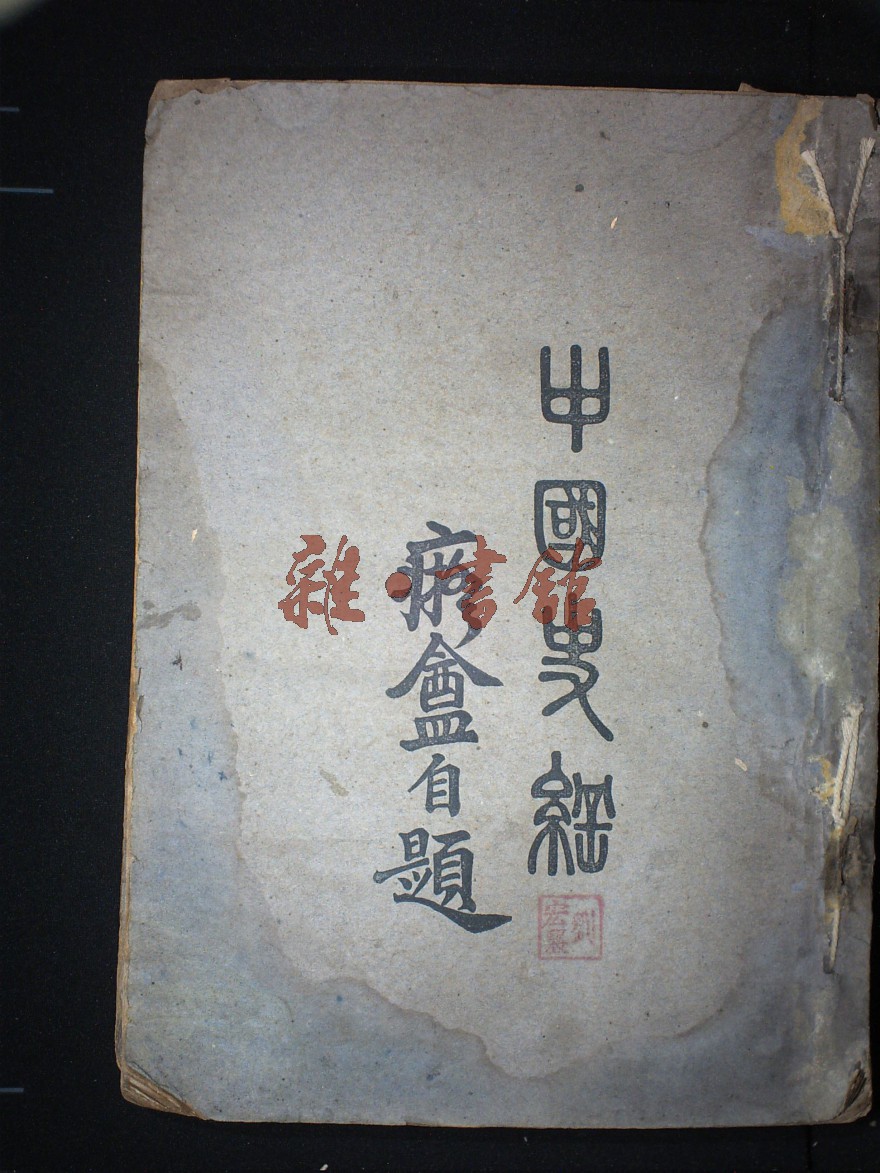 中國史綱
盦自題
劉宏
雜·書館